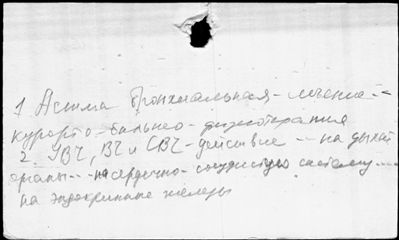 1 Астма бронхиальная - лечение -
курорто - бальнео - физиотерапия
2. УВЧ, ВЧ и СВЧ - действие - на дыхат
органы - - на сердечно-сосудистую систему - -
на эндокринные железы